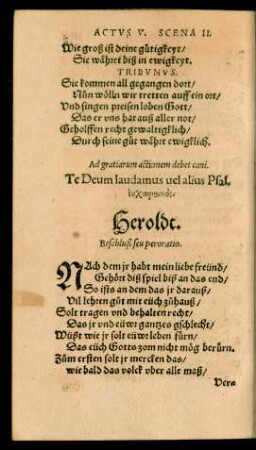 ACTVS V. SCENA II.
Wie groß ist deine gütigkeyt/
Sie währet biß in ewigkeyt.
TRIBVNVS.
Sie kommen all gegangen dort/
Nůn wöllẽ wir tretten auff ein ort/
Vnd singen preisen loben Gott/
Das er vns hat auß aller not/
Geholffen recht gewaltigklich/
Durch seine güt währt ewigklich.
Ad gratiarum actionem debet cani.
Te Deum laudamus uel alius Psal.
Heroldt.
Beschluß seu peroratio.
NAch dem jr habt mein liebe freünd/
Gehört diß spiel biß an das end/
So ists an dem das jr darauß/
Vil lehren gůt mit eüch zůhauß/
Solt tragen vnd behalten recht/
Das jr vnd eüwr gantzes gschlecht/
Wüßt wie jr solt eüwr leben fürn/
Das eüch Gotts zorn nicht mög berürn.
Zům ersten solt jr mercken das/
wie bald das volck vber alle maß/
Vers